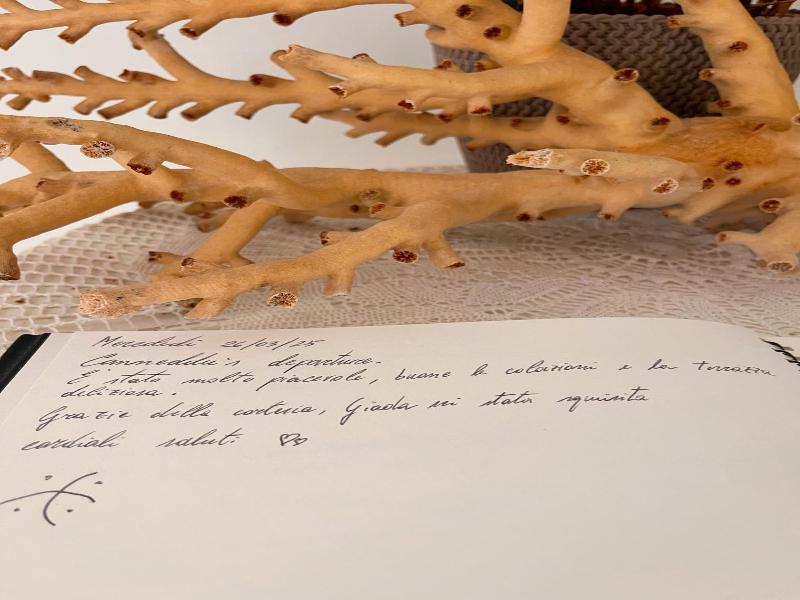 Mercoledì 26/03/25
Canneddi's departure.
È stato molto piacevole, buone le colazioni e la terrazza
deliziosa.
Grazie della cortesia, Giada sei stata squisita
cordiali saluti